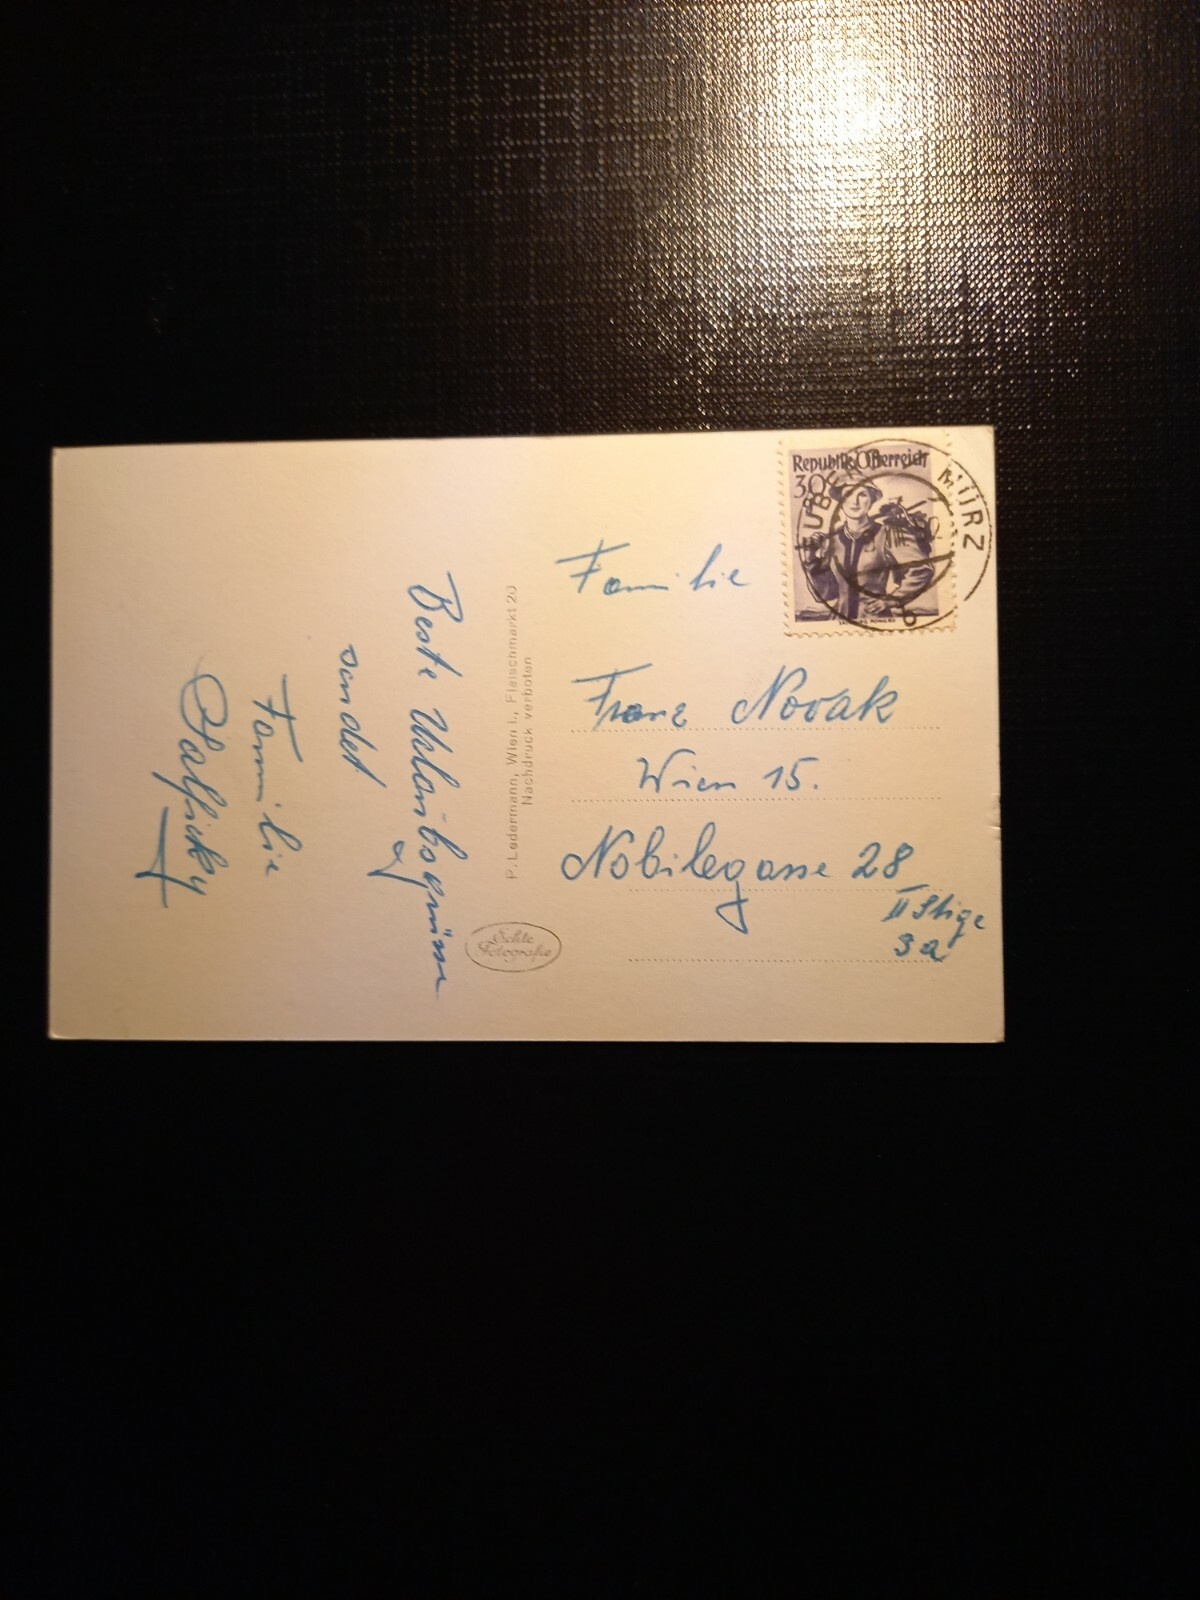 Beste Urlaubsgrüsse
sendet
Familie
P. Ledermann, Wien I., Fleischmarkt 20
Nachdruck verboten
Echte
Fotografie
Republik Österreich
30
NEUBERG
MÜRZ
b
Familie
Franz Novak
Wien 15.
Nobilegasse 28
II Stige
3a